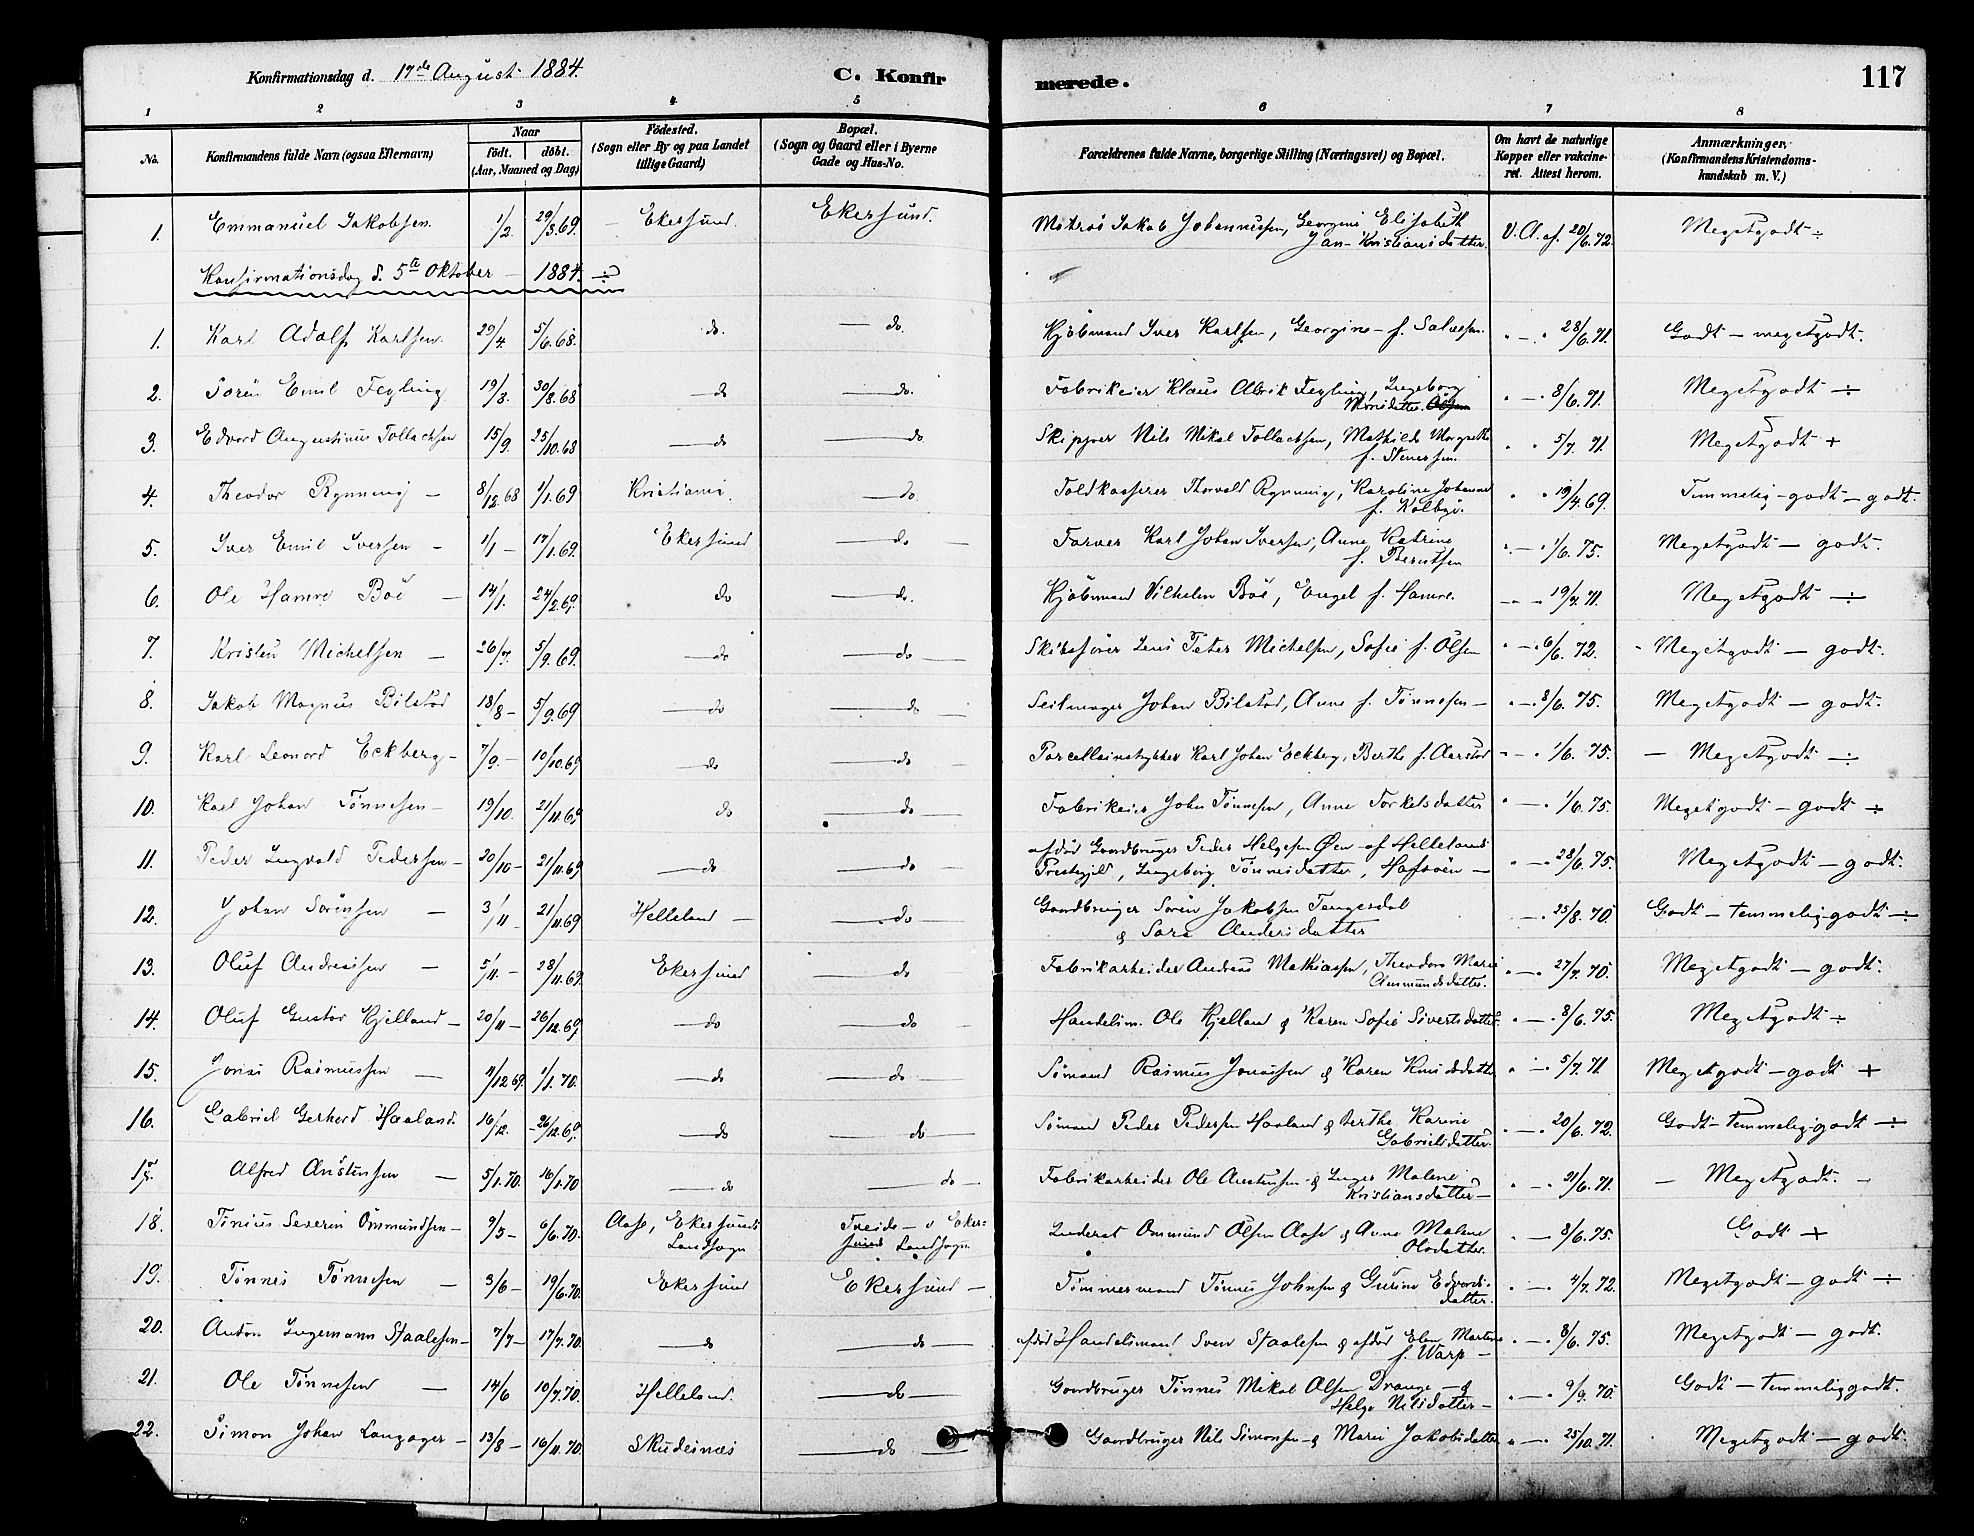 Konfirmationsdag d. 17de August 1884.
C. Konfirmerede.
117
1 2 3 4 5 6 7 8
No. Konfirmandens fulde Navn (ogsaa Efternavn) Naar født. døbt. (Aar, Maaned og Dag) Födested. (Sogn eller By og paa Landet tillige Gaard) Bopæl. (Sogn og Gaard eller i Byerne Gade og Hus-No. Forældrenes fulde Navne, borgerlige Stilling (Næringsvei) og Bopæl. Om havt de naturlige Kopper eller vakcineret. Attest herom. Anmærkninger. (Konfirmandens Kristendomskundskab m. V.)
1. Emmanuel Jakobsen. 1/2. 29/3.69. Ekersund. Ekersund. Matros Jakob Johannessen, Georgine Elisabeth Jan-Kristiansdatter. V. A. af. 20/6.72. Megetgodt ÷
Konfirmationsdag d. 5te Oktober – 1884. ÷
1. Karl Adolf Karlsen. 29/4. 5/6.68. do. do. Kjøbmand Iver Karlsen, Georgine f. Salvesen. " – " 28/6.71. Godt – megetgodt.
2. Sören Emil Feyling 19/3. 30/8.68 do do. Fabrikeier Klaus Alrik Feyling, Ingeborg Monsdatter. " – " 8/6.71. Megetgodt ÷
3. Edvard Augustinus Tollachsen 15/9. 25/10.68 do do Skipper Nils Mikal Tollachsen, Mathilde Margrethe f. Stenersen. " " 5/7 71. Megetgodt +
4. Theodor Rynning – 8/12.68 1/1.69 Kristiania. do. Toldkasserer Thorvald Rynning, Karoline Johanne f. Kolbye. " " 19/4.69. Temmelig-godt – godt.
5. Iver Emil Iversen – 1/1 – 17/1.69. Ekersund do Farver Karl Johan Iversen, Anne Katrine f. Berntsen " – " 1/6.75. Megetgodt – godt.
6. Ole Hamre Böe – 14/1. 24/2.69. do do. Kjöbmand Vilhelm Böe, Engel f. Hamre. – " 19/7.71. Megetgodt ÷
7. Kristen Michelsen – 26/7. 5/9.69. do do – Skibsfører Jens Peter Michelsen, Sofie f. Olsen " – " 6/6.72. - Megetgodt – godt.
8. Jakob Magnus Bilstad 18/8 – 5/9.69 do do – Seilmager Johan Bilstad, Anne f. Tönnesen – " – " 8/6.75. Megetgodt – godt.
9. Karl Leonard Eckberg – 7/9. – 10/10.69 do do – Porcellainstrykker Karl Johan Eckberg, Berthe f. Aarstad " – " 1/6.75. – Megetgodt ÷
10. Karl Johan Tönnesen – 19/10. 21/11.69 do do – Fabrikeier John Tönnesen, Anne Torkelsdatter " – " 1/6.75. Megetgodt – godt ÷
11. Peder Ingvald Pedersen – 20/10 – 21/11.69 do do – afdød Gaardbruger Peder Helgesen Øen af Hellelands Prestegjeld, Ingeborg Tönnesdatter, Hafsöen – " – " 28/6.75. Megetgodt – godt.
12. Johan Sörensen – 3/11 – 21/11.69 Helleland – do Gaardbruger Sören Jakobsen Tengesdal & Sara Andersdatter – " 25/8.70. Godt – temmelig-godt ÷
13. Oluf Andreassen – 5/11 – 28/11.69. Ekersund do Fabrikarbeider Andreas Mathiassen, Theodora Marie Ommundsdatter. " – " 27/7.70. Megetgodt – godt.
14. Oluf Gustav Kjelland – 20/11 – 26/12.69. do do – Handelsm. Ole Kjelland & Karen Sofie Sivertsdatter. " – " 8/6.75. Megetgodt ÷
15. Jonas Rasmussen – 11/12 69. 1/1.70. do do – Sömand Rasmus Jonassen & Karen Knudsdatter " – " 5/7.71 Megetgodt – godt +
16. Gabriel Gerhard Haaland. 16/12. – 26/12.69. do do – Sömand Peder Pedersen Haaland & Berthe Karine Gabrielsdatter. " – " 20/6.72. Godt – temmelig-godt ÷
17. Alfred Austensen – 5/1.70. 16/1.70 do do – Fabrikarbeider Ole Austensen & Inger Malene Kristiansdatter – " – " 21/6.71. – Megetgodt. –
18. Tönnes Severin Ommundsen – 9/3 – 6/6.70. Aase, Ekersunds Landsogn Ekersund Landsogn. Inderst Ommund Olsen Aase & Anne Malene Olsdatter. " – " 8/6.75. Godt +
19. Tönnes Tönnesen – 3/6 – 19/6.70. Ekersund Ekersund – Tömmermand Tönnes Johnsen & Gurine Edvardsdatter. " – " 4/7.72. Megetgodt – godt ÷
20. Anton Ingemann Staalesen – 7/7 – 17/7.70. do do – afdöd Handelsmand Sven Staalesen & afdöd Elen Martine f. Warp – " – " 8/6.75. Megetgodt – godt.
21. Ole Tönnesen – 14/6 10/7.70. Helleland. do – Gaardbruger Tönnes Mikal Olsen Drange – & Helge Nilsdatter – " – " 9/9.70. Godt – temmeliggodt.
22. Simon Johan Langager – 13/8 – 16/11.70. Skudesnæs do – Gaardbruger Nils Simonsen & Marie Jakobsdatter " – " 25/10.71. Megetgodt – godt.